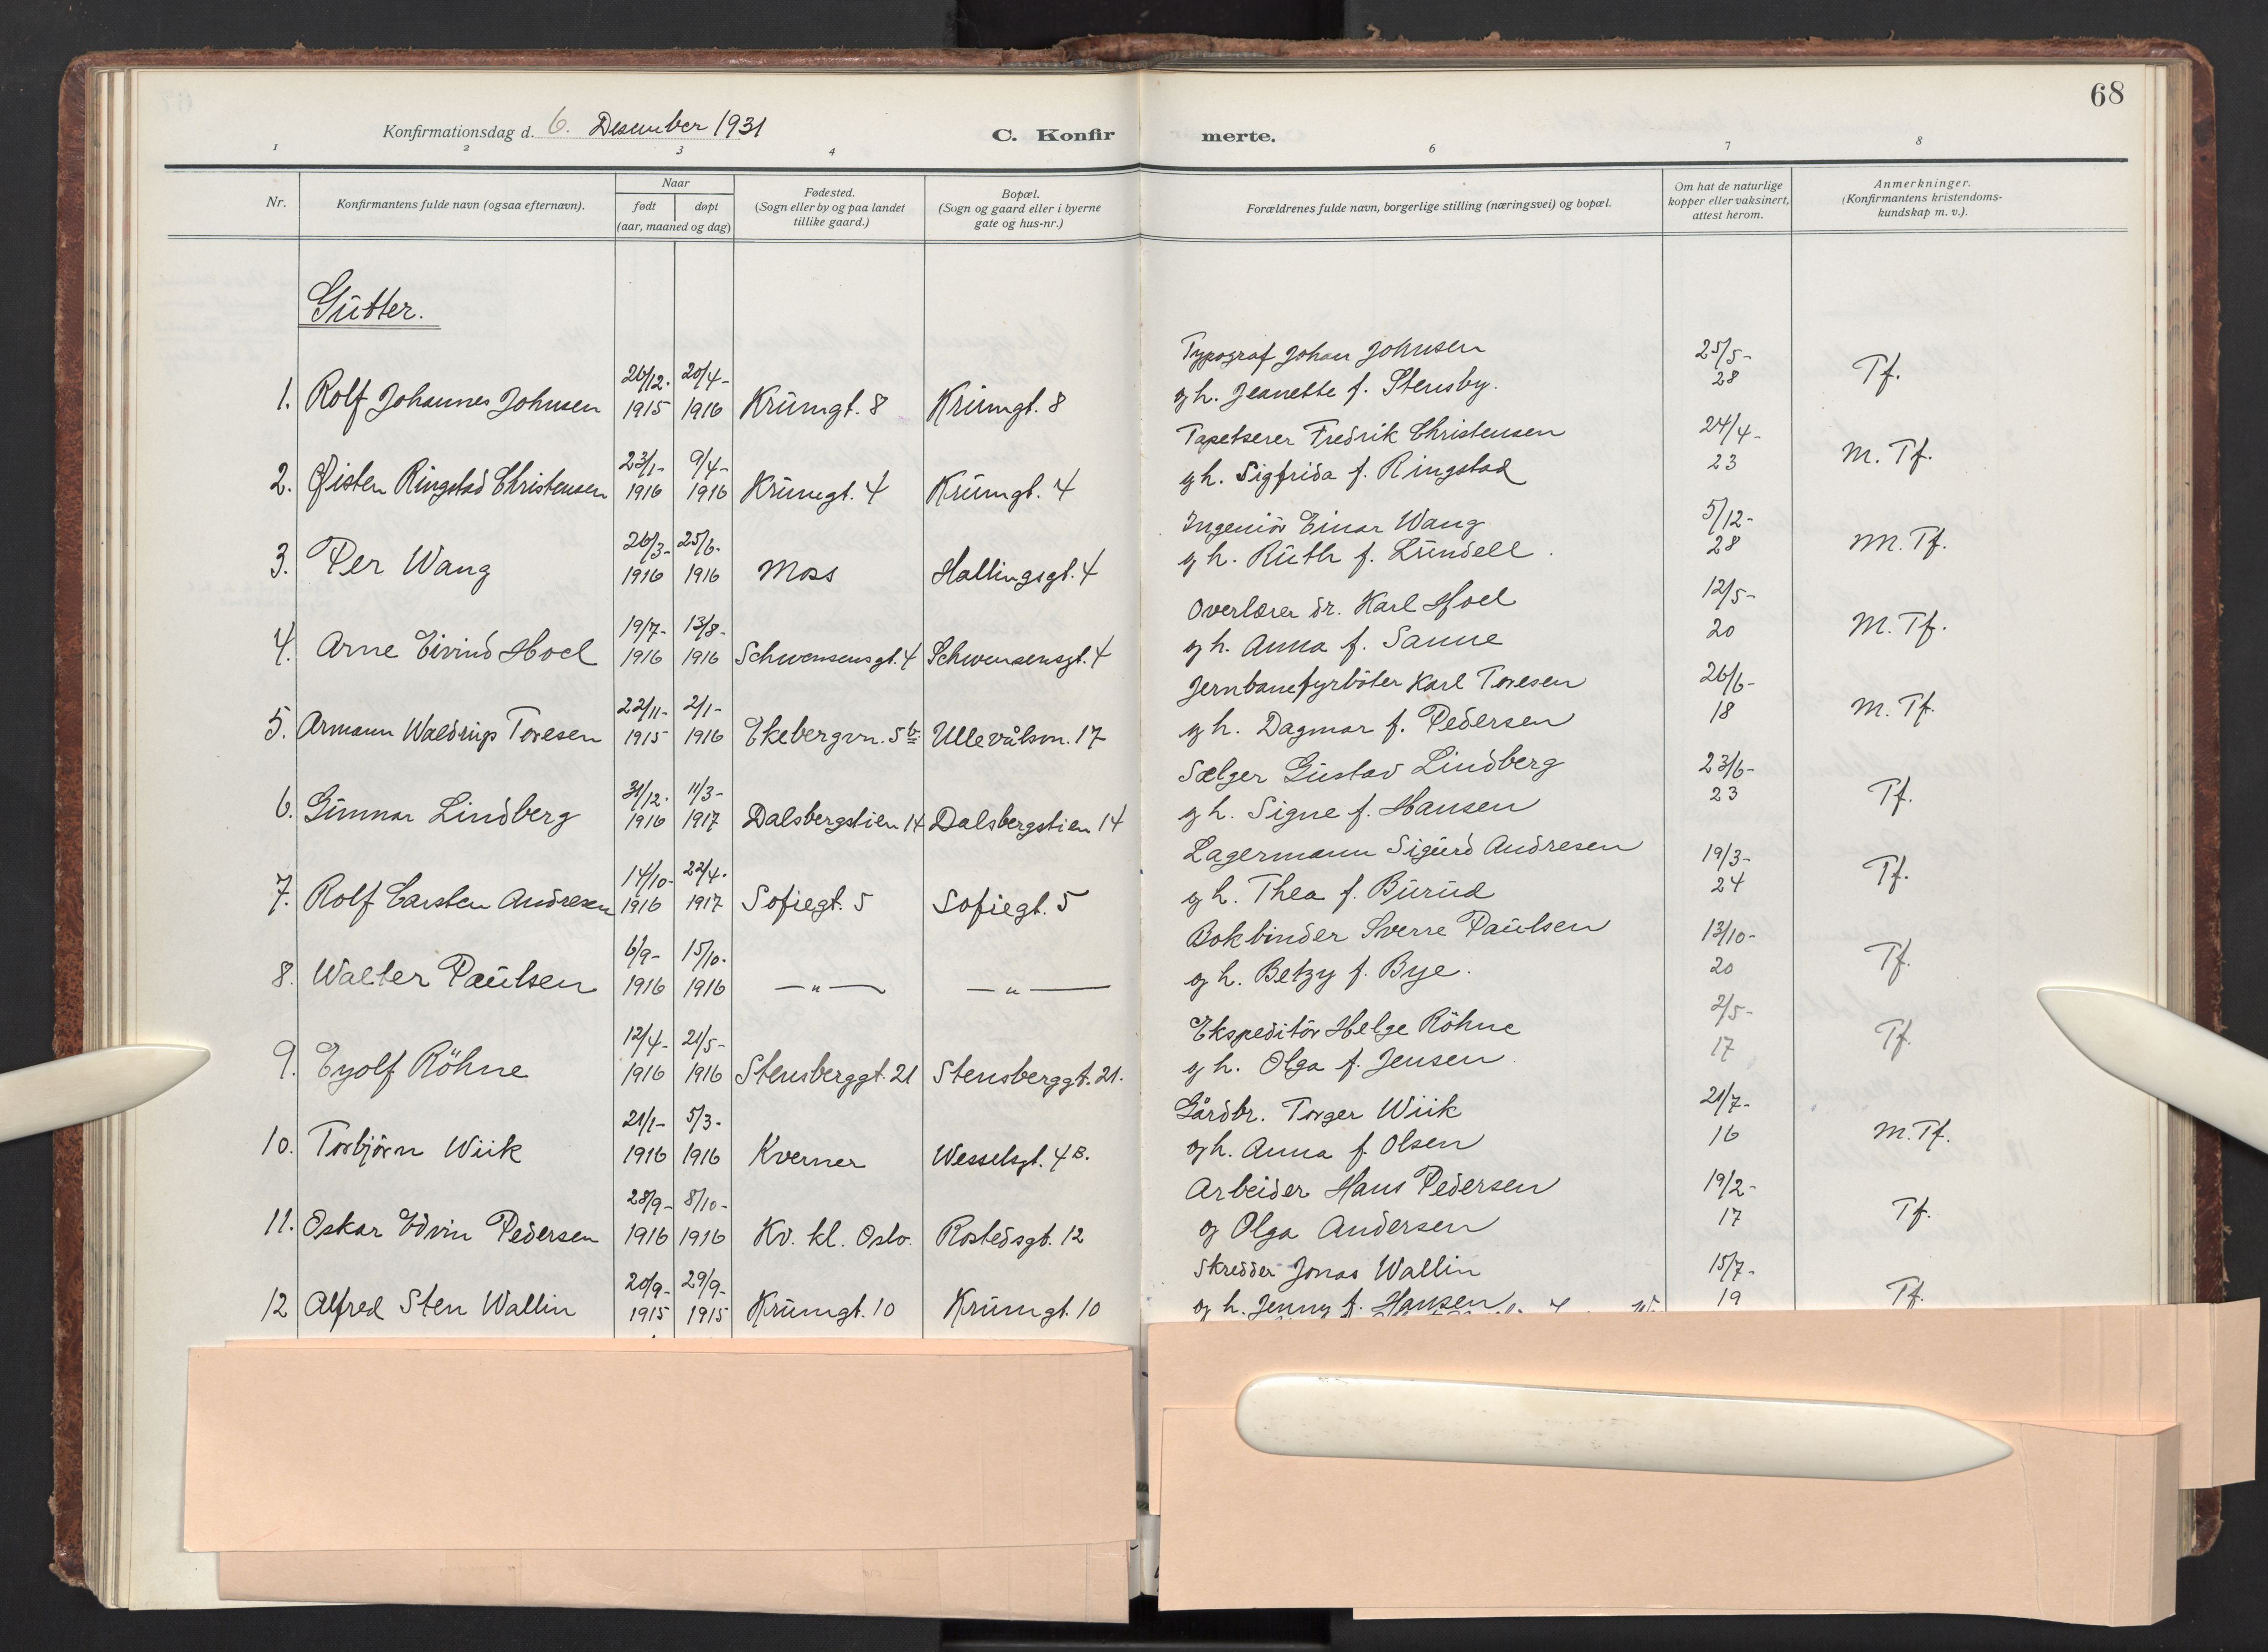 68
Konfirmationsdag d. 6. Desember 1931
C. Konfirmerte.
1 2 3 4 6 7 8
Nr.
Konfirmantens fulde navn (ogsaa efternavn).
Naar
født døpt
(aar, maaned og dag)
Fødested.
(Sogn eller by og paa landet
tillike gaard.)
Bopæl.
(Sogn og gaard eller i byerne
gate og hus-nr.)
Forældrenes fulde navn, borgerlige stilling (næringsvei) og bopæl.
Om hat de naturlige
kopper eller vaksinert,
attest herom.
Anmerkninger.
(Konfirmantens kristendoms-
kundskap m. v.).
Gutter.
26/12- 20/4- Typograf Johan Johnsen 25/5-
1. Rolf Johannes Johnsen 1915 1916 Krumgt. 8 Krumgt. 8 og h. Jeanette f. Stensby. 28 Tf.
23/1- 9/4- Tapetserer Fredrik Christensen 24/4-
2. Øisten Ringstad Christensen 1916 1916 Krumgt. 4 Krumgt. 4 og h. Sigfrida f. Ringstad 23 M. Tf.
26/3- 25/6- Ingeniör Einar Wang 5/12-
3. Per Wang 1916 1916 Moss Hallingsgt. 4 og h. Ruth f. Lundell. 28 M. Tf.
19/7- 13/8- Overlærer dr. Karl Hoel 12/5-
4. Arne Eivind Hoel 1916 1916 Schwensensgt. 4 Schwensensgt. 4 og h. Anna f. Sanne 20 M. Tf.
22/11- 2/1- Jernbanefyrböter Karl Toresen 26/6-
5. Armann Waldrup Toresen 1915 1916 Ekebergvn. 5b. Ullevålsvn. 17 og h. Dagmar f. Pedersen 18 M. Tf.
31/12- 11/3- Sælger Gustav Lindberg 23/6-
6. Gunnar Lindberg 1916 1917 Dalsbergstien 14 Dalsbergstien 14 og h. Signe f. Hansen 23 Tf.
14/10- 22/4- Lagermann Sigurd Andresen 19/3-
7. Rolf Carsten Andresen 1916 1917 Sofiegt. 5 Sofiegt. 5 og h. Thea f. Burud 24 Tf.
6/9- 15/10- Bokbinder Sverre Paulsen 13/10-
8. Walter Paulsen 1916 1916 —"— —"— og h. Betzy f. Bye. 20 Tf.
12/4- 21/5- Ekspeditör Helge Röhne 2/5-
9. Eyolf Röhne 1916 1916 Stensberggt. 21 Stensberggt. 21. og h. Olga f. Jensen 17 Tf.
21/1- 5/3- Gårdbr. Torger Wiik 21/7-
10. Torbjörn Wiik 1916 1916 Kverner Wesselsgt. 4B. og h. Anna f. Olsen 16 M. Tf.
28/9- 8/10- Arbeider Hans Pedersen 19/2-
11. Oskar Edvin Pedersen 1916 1916 Kv. kl. Oslo. Rostedsgt. 12 og Olga Andersen 17 Tf.
20/9- 29/9- Skredder Jonas Wallin 15/7-
12 Alfred Sten Wallin 1915 1915 Krumgt. 10 Krumgt. 10 og h. Jenny f. Hansen 19 Tf.